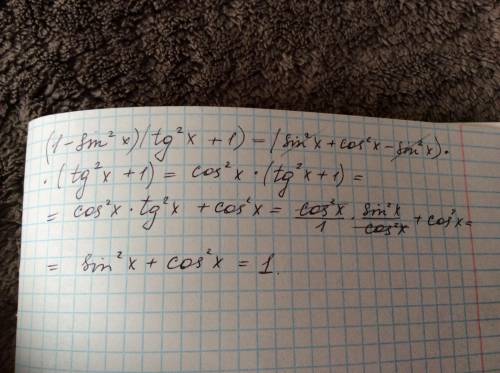 (1-sin²x)(tg²x+1)=(sin²x+cos²x-sin²x)·
·(tg²x+1)=cos²x·(tg²x+1)=
=cos²x·tg²x+cos²x=cos²x/1·sin²x/cos²x+cos²x=
=sin²x+cos²x=1.